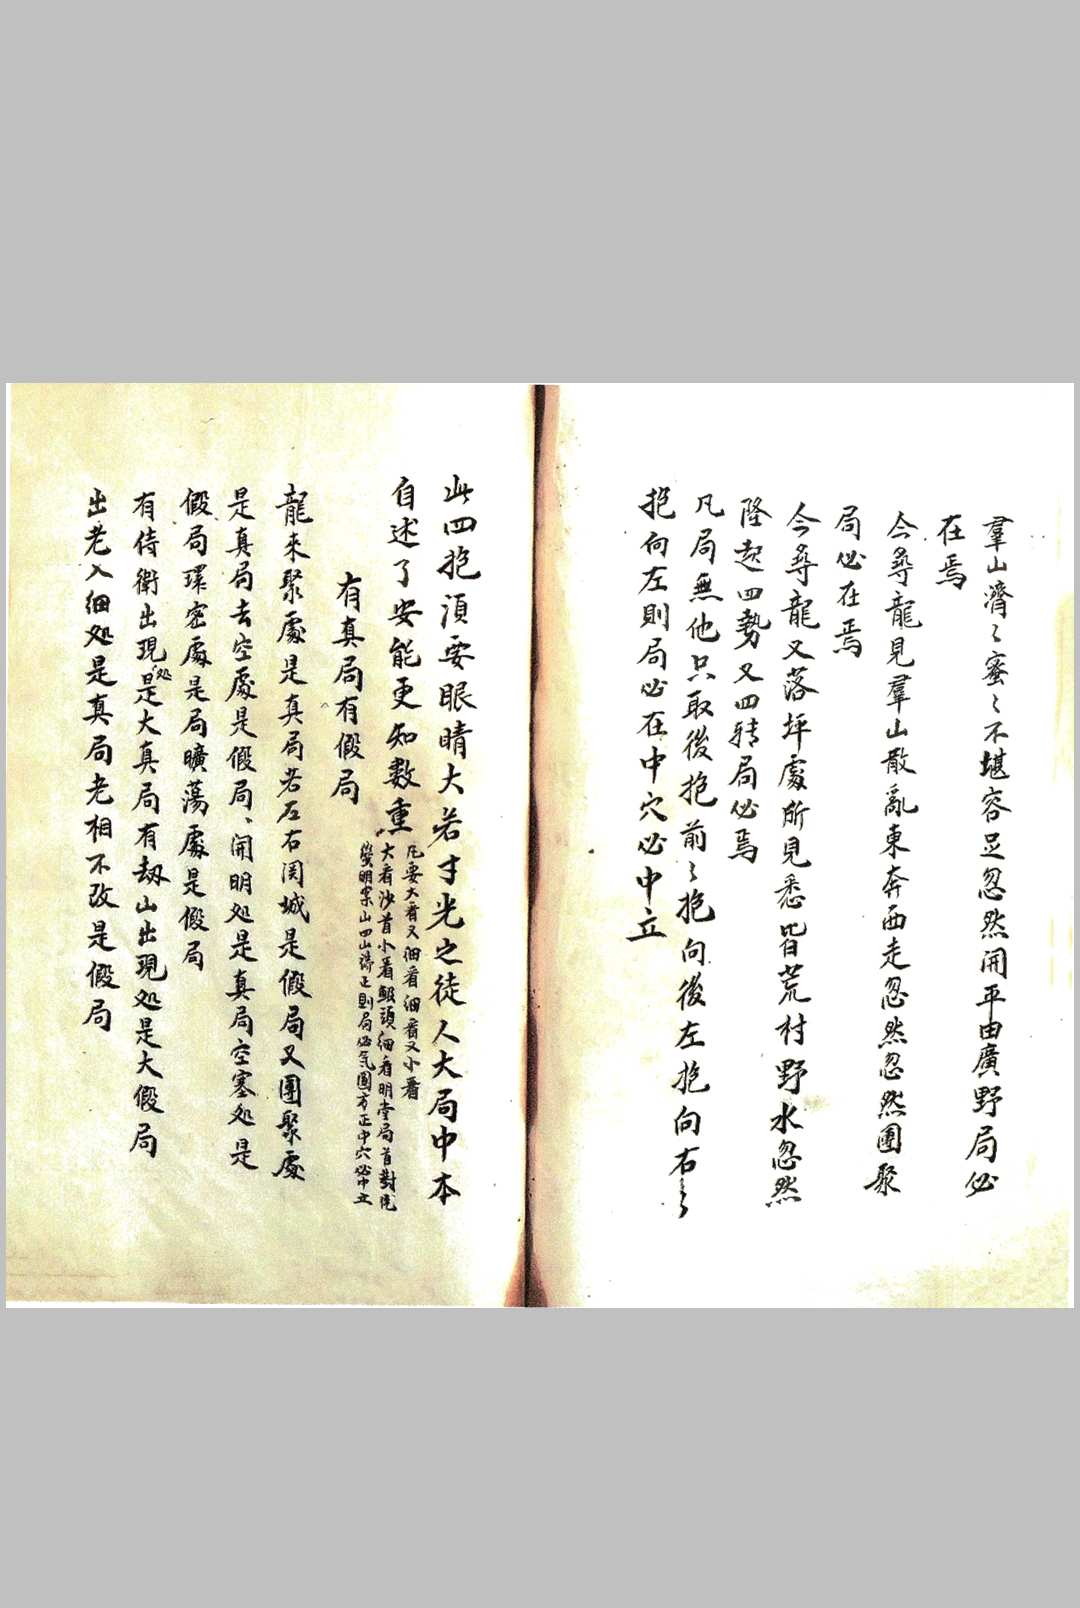 羣山濟〻蜜〻不堪容足忽然開平由廣野局必
在焉
今尋龍見羣山散亂東奔西走忽然忽然團聚
局必在焉
今尋龍又落坪處所見悉皆荒村野水忽然
隆起四勢又四轉局必焉
凡局無他只取後抱前〻抱向後左抱向右〻
抱向左則局必在中穴必中立
此四抱須要眼睛大若寸光之徒人大局中本
自述了安能更知數重
凡要大看又細看細看又小看
大看沙首小看頭細看明堂局首對
明案山四山濟正則局必氣團方正中穴必中立
有真局有假局
龍来聚處是真局若左右闊城是假局又團聚處
是真局去空處是假局、開明处是真局空塞处是
假局環密處是局曠蕩處是假局
有侍衛出現处是大真局有劫山出現处是大假局
出老入细处是真局老相不改是假局